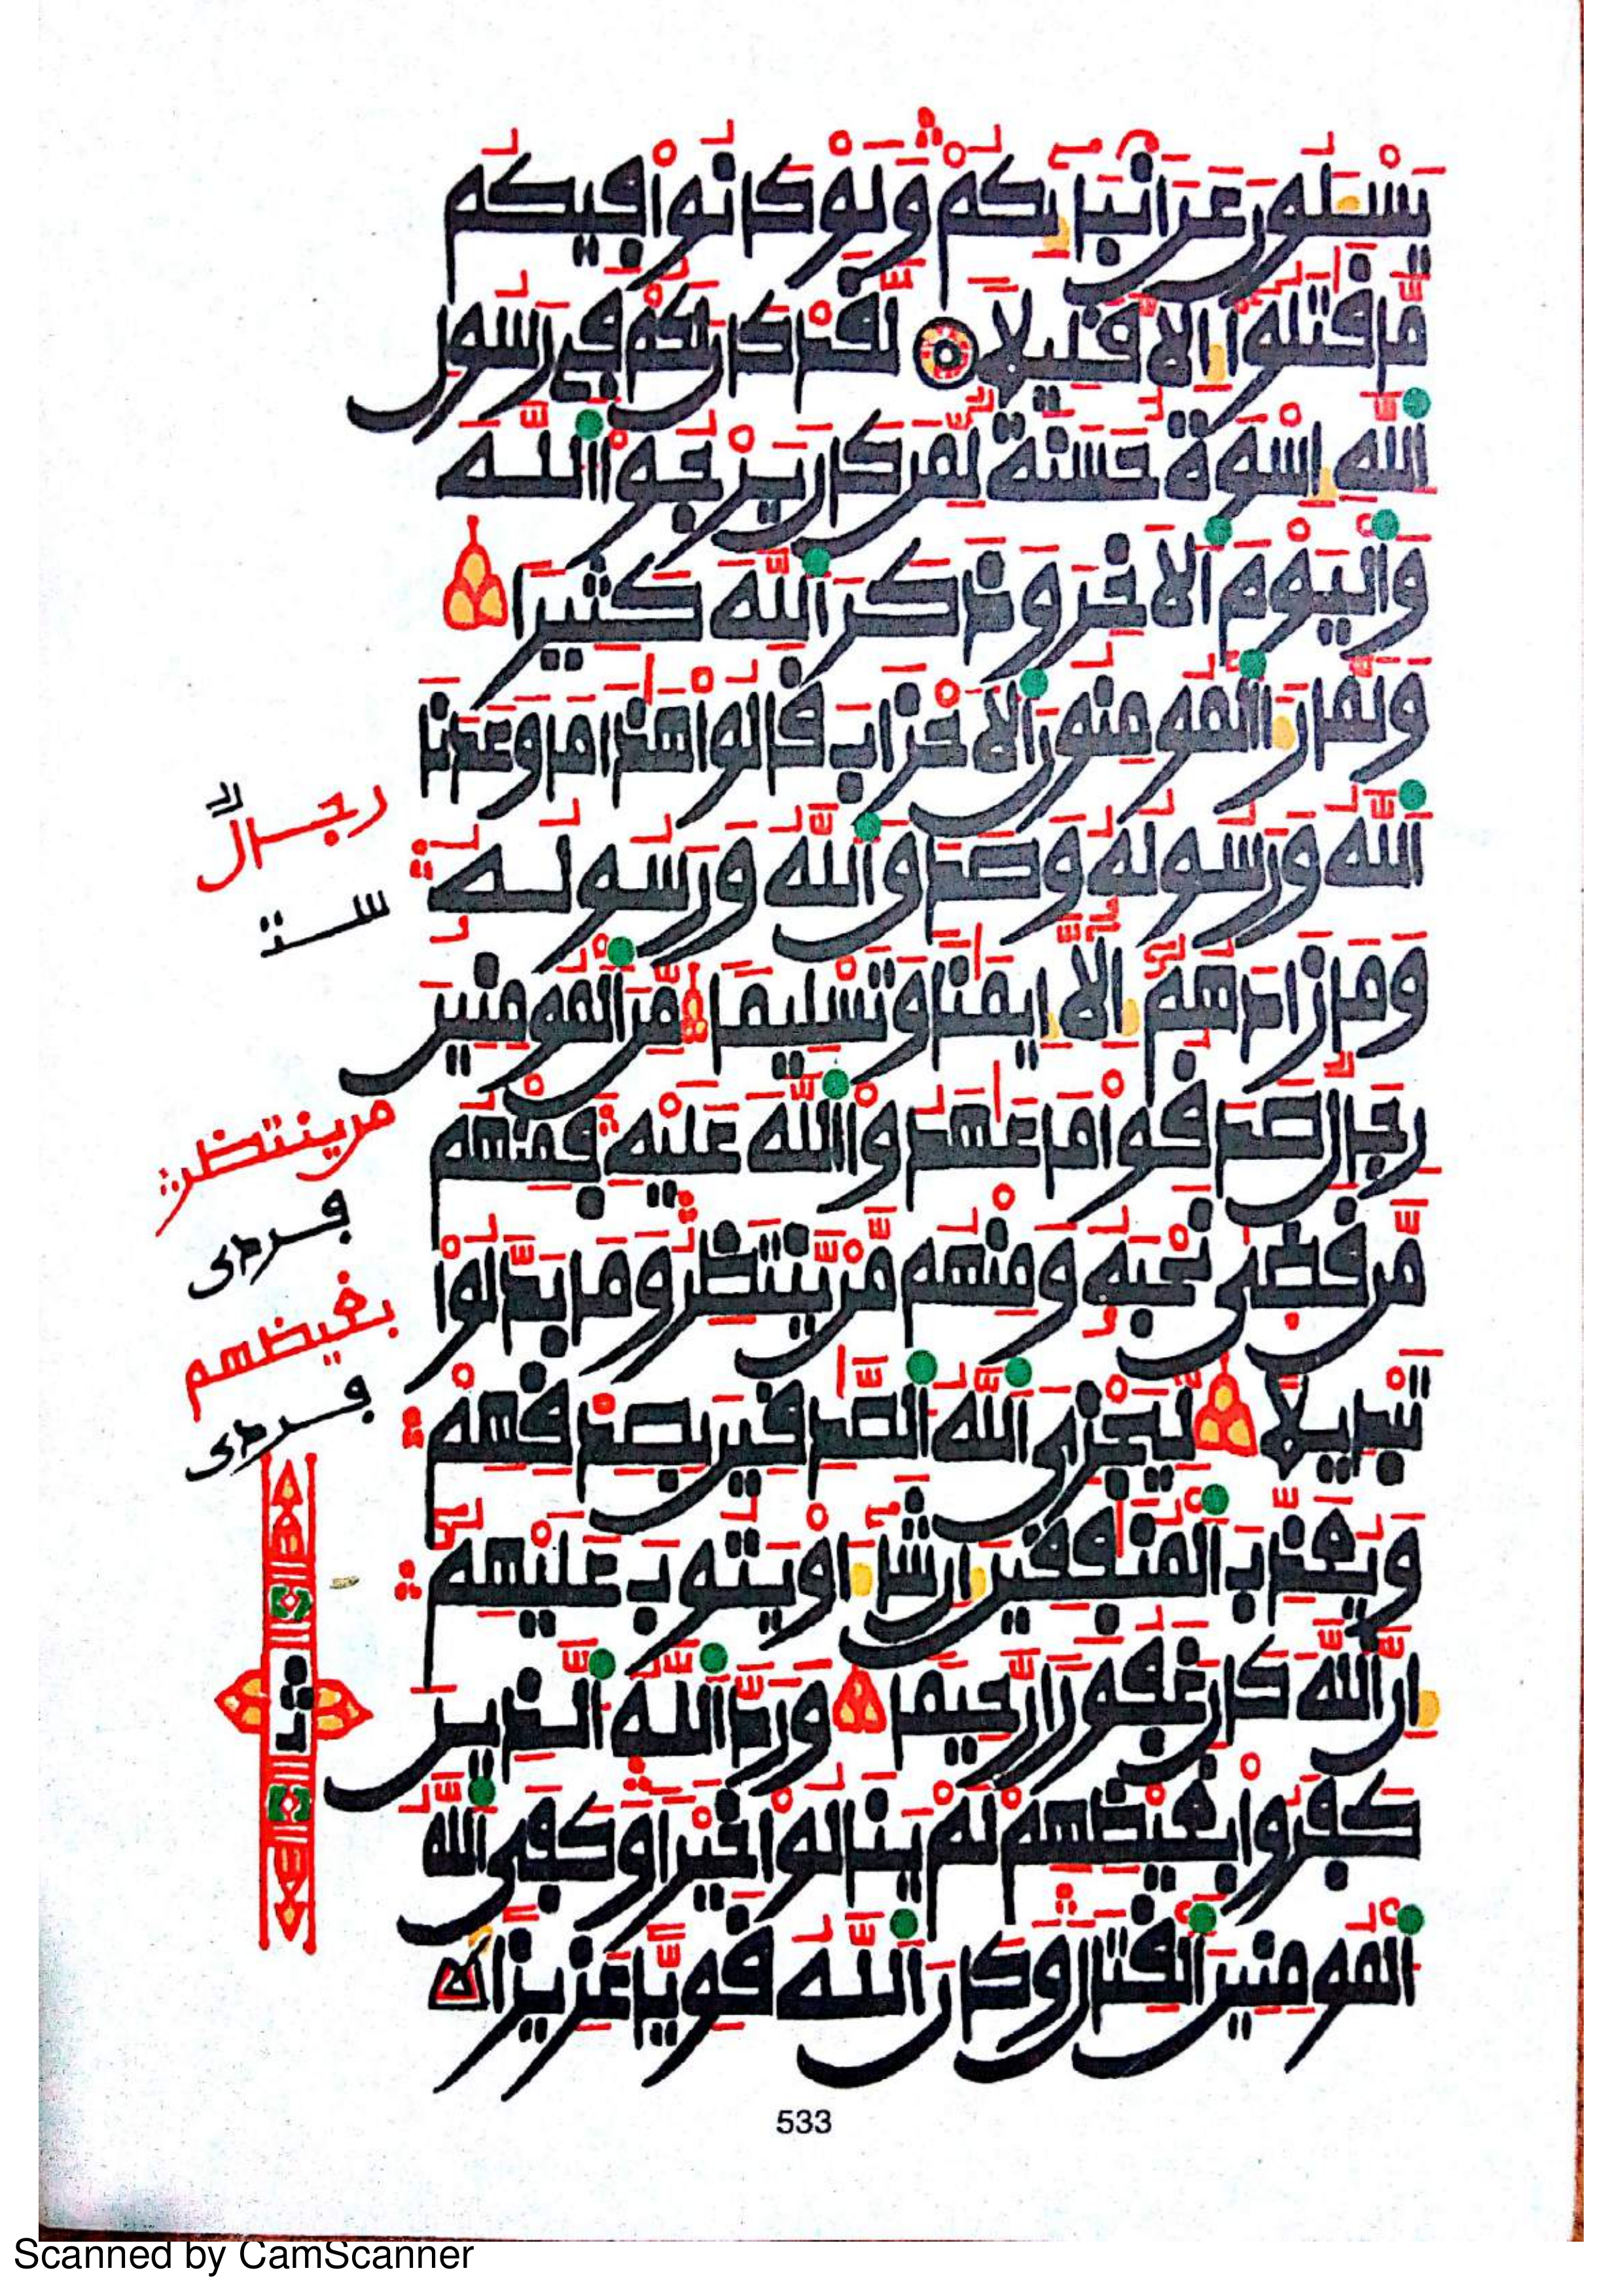 يَسْـَٔلُونَ عَنَ اَنۢبَآئِكُمْ وَلَوْ كَانُواْ فِيكُم
مَّا قَٰتَلُوٓاْ إِلَّا قَلِيلًا لَّقَدْ كَانَ لَكُمْ فِى رَسُولِ
اِ۬للَّهِ إِسْوَةٌ حَسَنَةٌ لِّمَن كَانَ يَرْجُواْ اُ۬للَّهَ
وَالْيَوْمَ اَ۬لَاخِرَ وَذَكَرَ اَ۬للَّهَ كَثِيرًا
وَلَمَّا رَءَا اَ۬لْمُومِنُونَ اَ۬لَاحْزَابَ قَالُواْ هَٰذَا مَا وَعَدَنَا
اَ۬للَّهُ وَرَسُولُهُۥ وَصَدَقَ اَ۬للَّهُ وَرَسُولُهُۥ
وَمَا زَادَهُمُۥٓ إِلَّآ إِيمَٰنًا وَتَسْلِيمًا مِّنَ اَ۬لْمُومِنِينَ
رِجَالٌ صَدَقُواْ مَا عَٰهَدُواْ اُ۬للَّهَ عَلَيْهِ فَمِنْهُم
مَّن قَضَىٰ نَحْبَهُۥ وَمِنْهُم مَّنْ يَّنتَظِرُ وَمَا بَدَّلُواْ
تَبْدِيلًا لِّيَجْزِىَ اَ۬للَّهُ اُ۬لصَّٰدِقِينَ بِصِدْقِهِمْ
وَيُعَذِّبَ اَ۬لْمُنَٰفِقِينَ إِن شَآءَ اَوْ يَتُوبَ عَلَيْهِمُۥٓ
إِنَّ اَ۬للَّهَ كَانَ غَفُورًا رَّحِيمًا وَرَدَّ اَ۬للَّهُ اُ۬لذِينَ
كَفَرُواْ بِغَيْظِهِمْ لَمْ يَنَالُواْ خَيْرًا وَكَفَى اَ۬للَّهُ
اُ۬لْمُومِنِينَ اَ۬لْقِتَالَ وَكَانَ اَ۬للَّهُ قَوِيًّا عَزِيزًا
رجالٌ
ستة
من ينتظر
فردى
بغيضهم
فردى
ثمن
533
Scanned by CamScanner